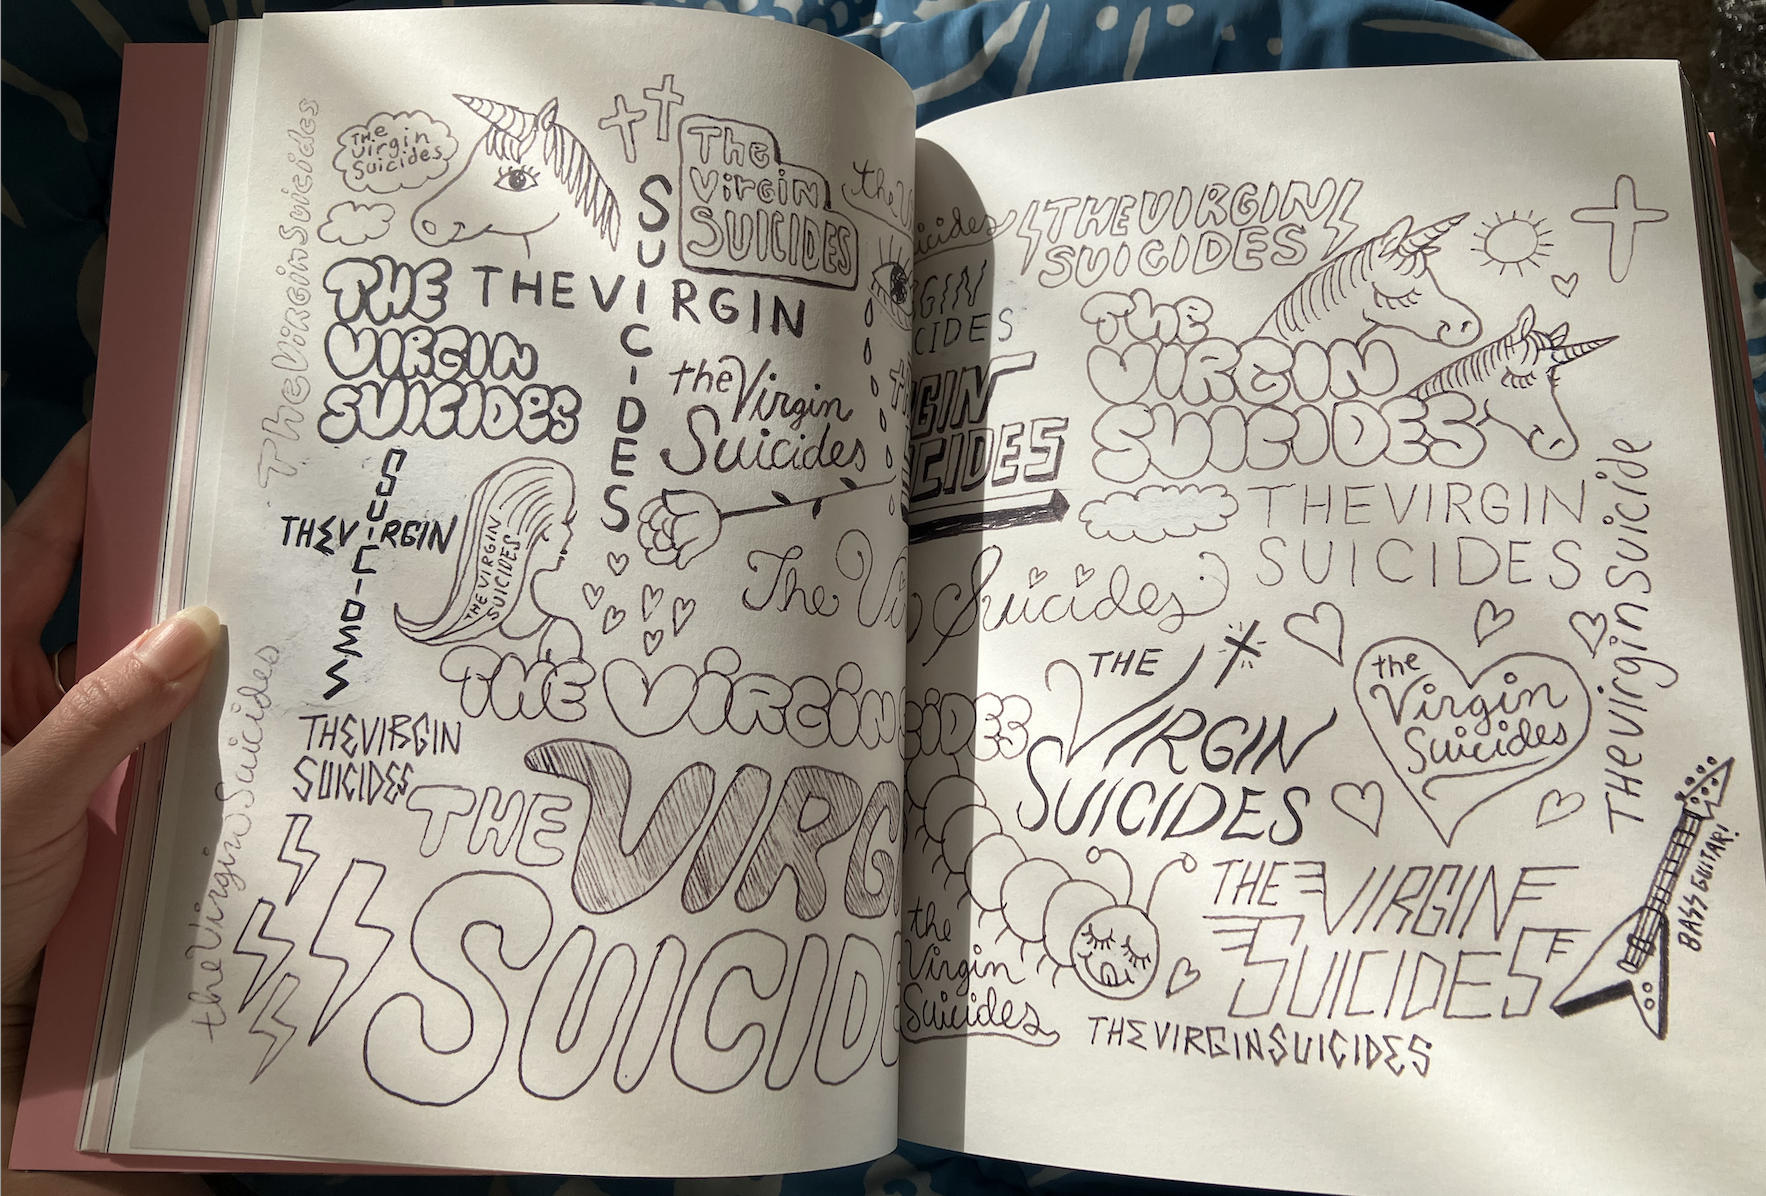 The Virgin Suicides
THE
Virgin
Suicides
The
Virgin
SUICIDES
the V
icides
THE VIRGIN
SUICIDES
THE
VIRGIN
SUICIDES
THE VIRGIN
SUICIDES
the Virgin
Suicides
GIN
CIDES
RGIN
CIDES
THE
VIRGIN
SUICIDES
THE VIRGIN
SUICIDES
THE VIRGIN
SUICIDES
THE VIRGIN
SUICIDES
THE VIRGIN
SUICIDES
The Vi Suicides
THE VIRGIN CIDES
THE VIRGIN
SUICIDES
the Virgin Suicides
THE VIRG
SUICID
THE
VIRGIN
SUICIDES
the
Virgin
Suicides
THE VIRGIN SUICIDE
the
Virgin
Suicides
THE VIRGIN
SUICIDES
BASS GUITAR!
THE VIRGIN SUICIDES